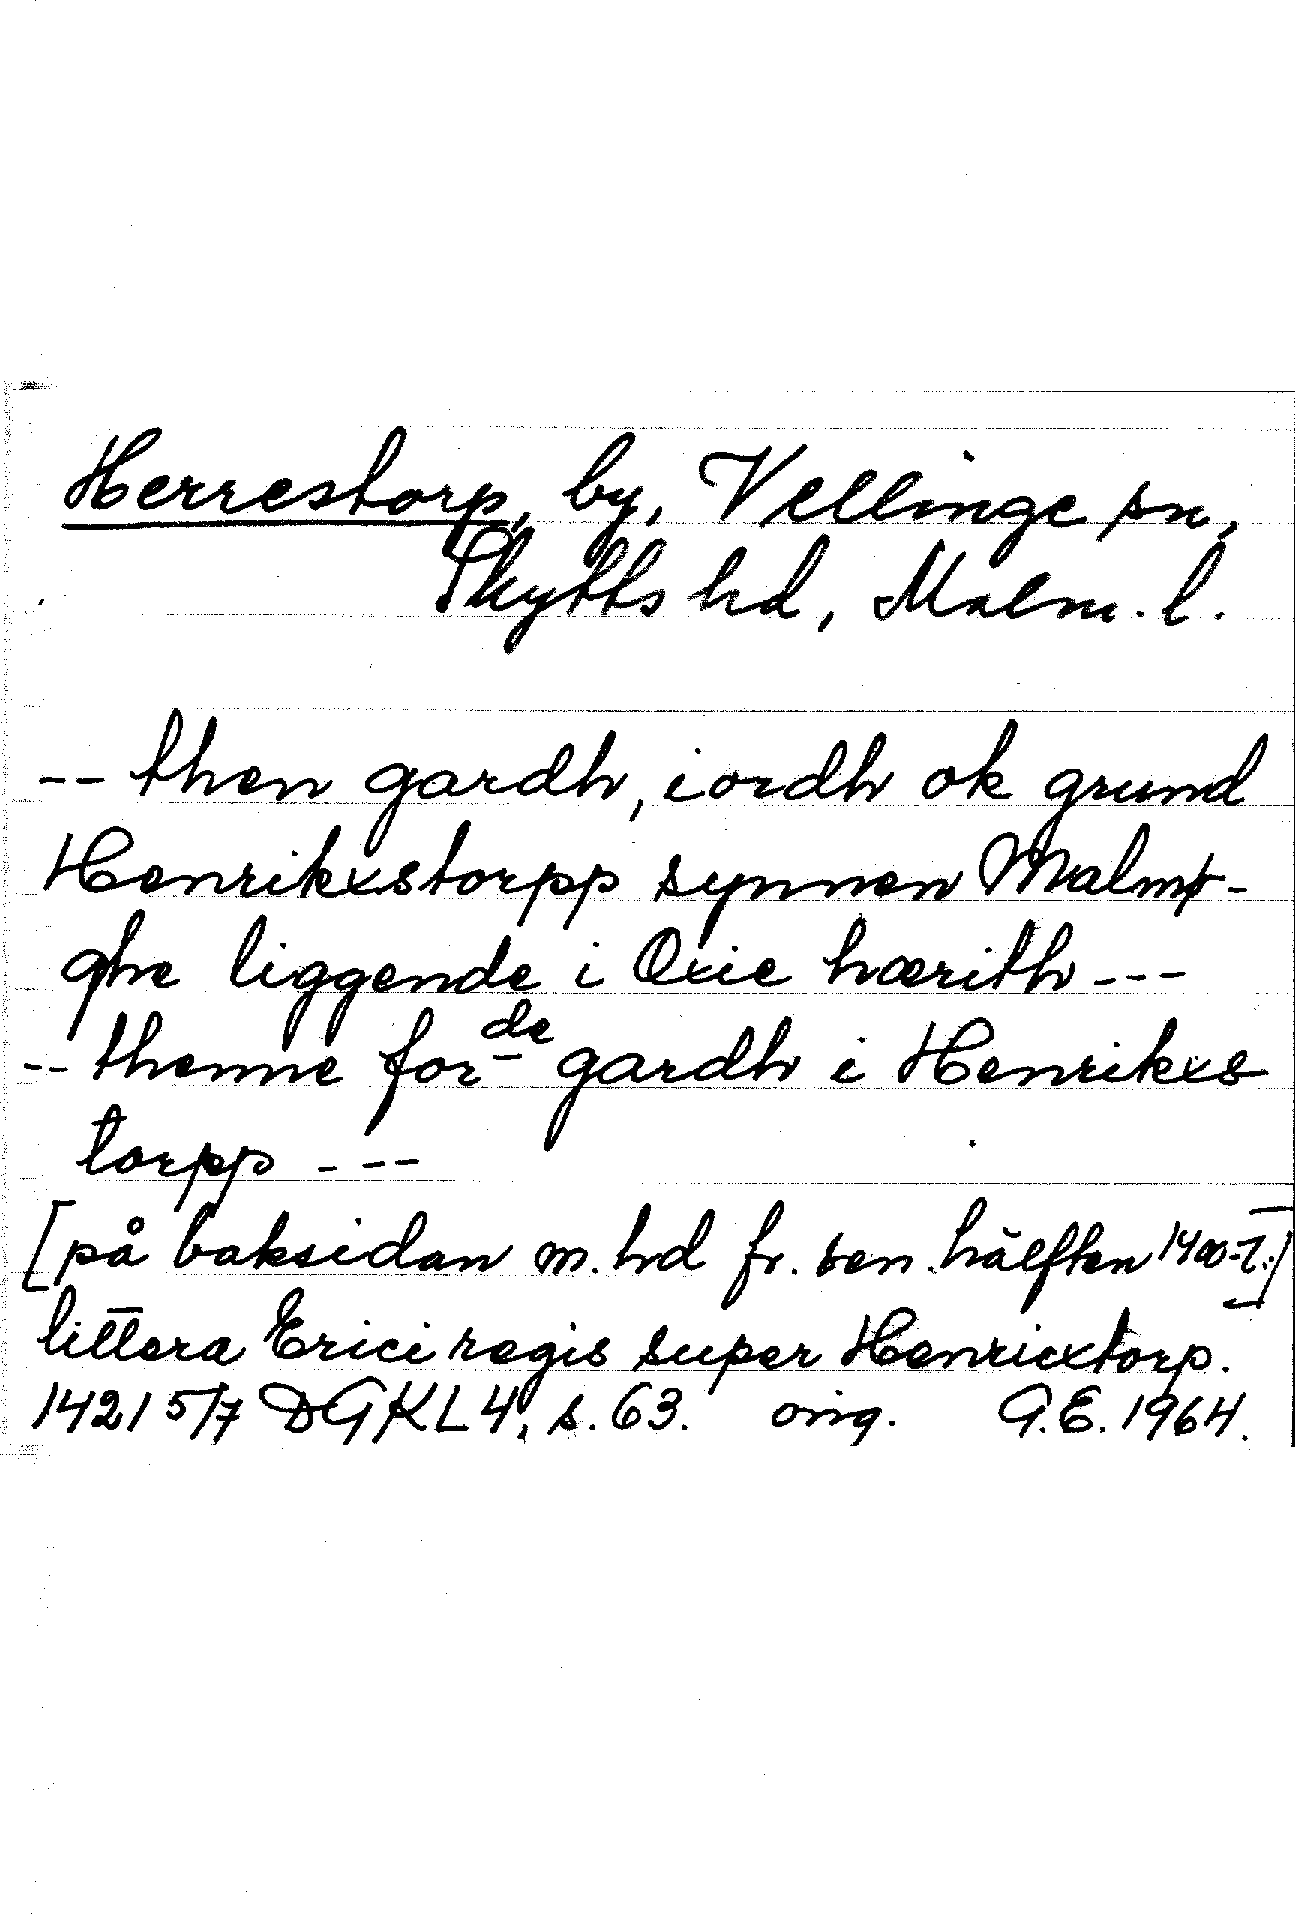 Herrestorp, by, Vellinge sn,
Skytts hd, Malm. l.
-- then gardh, iordh ok grund
Henrikxstorpp synnen Malmø-
ghe liggende i Oxie hærith ---
-- thenne forde gardh i Henrikxs
torpp ---
[på baksidan m. hd fr. sen. hälften 1400-t.]
littera Erici regis super Henricxtorp.
1421 5/7 DGKL 4, s. 63. orig. G.E. 1964.